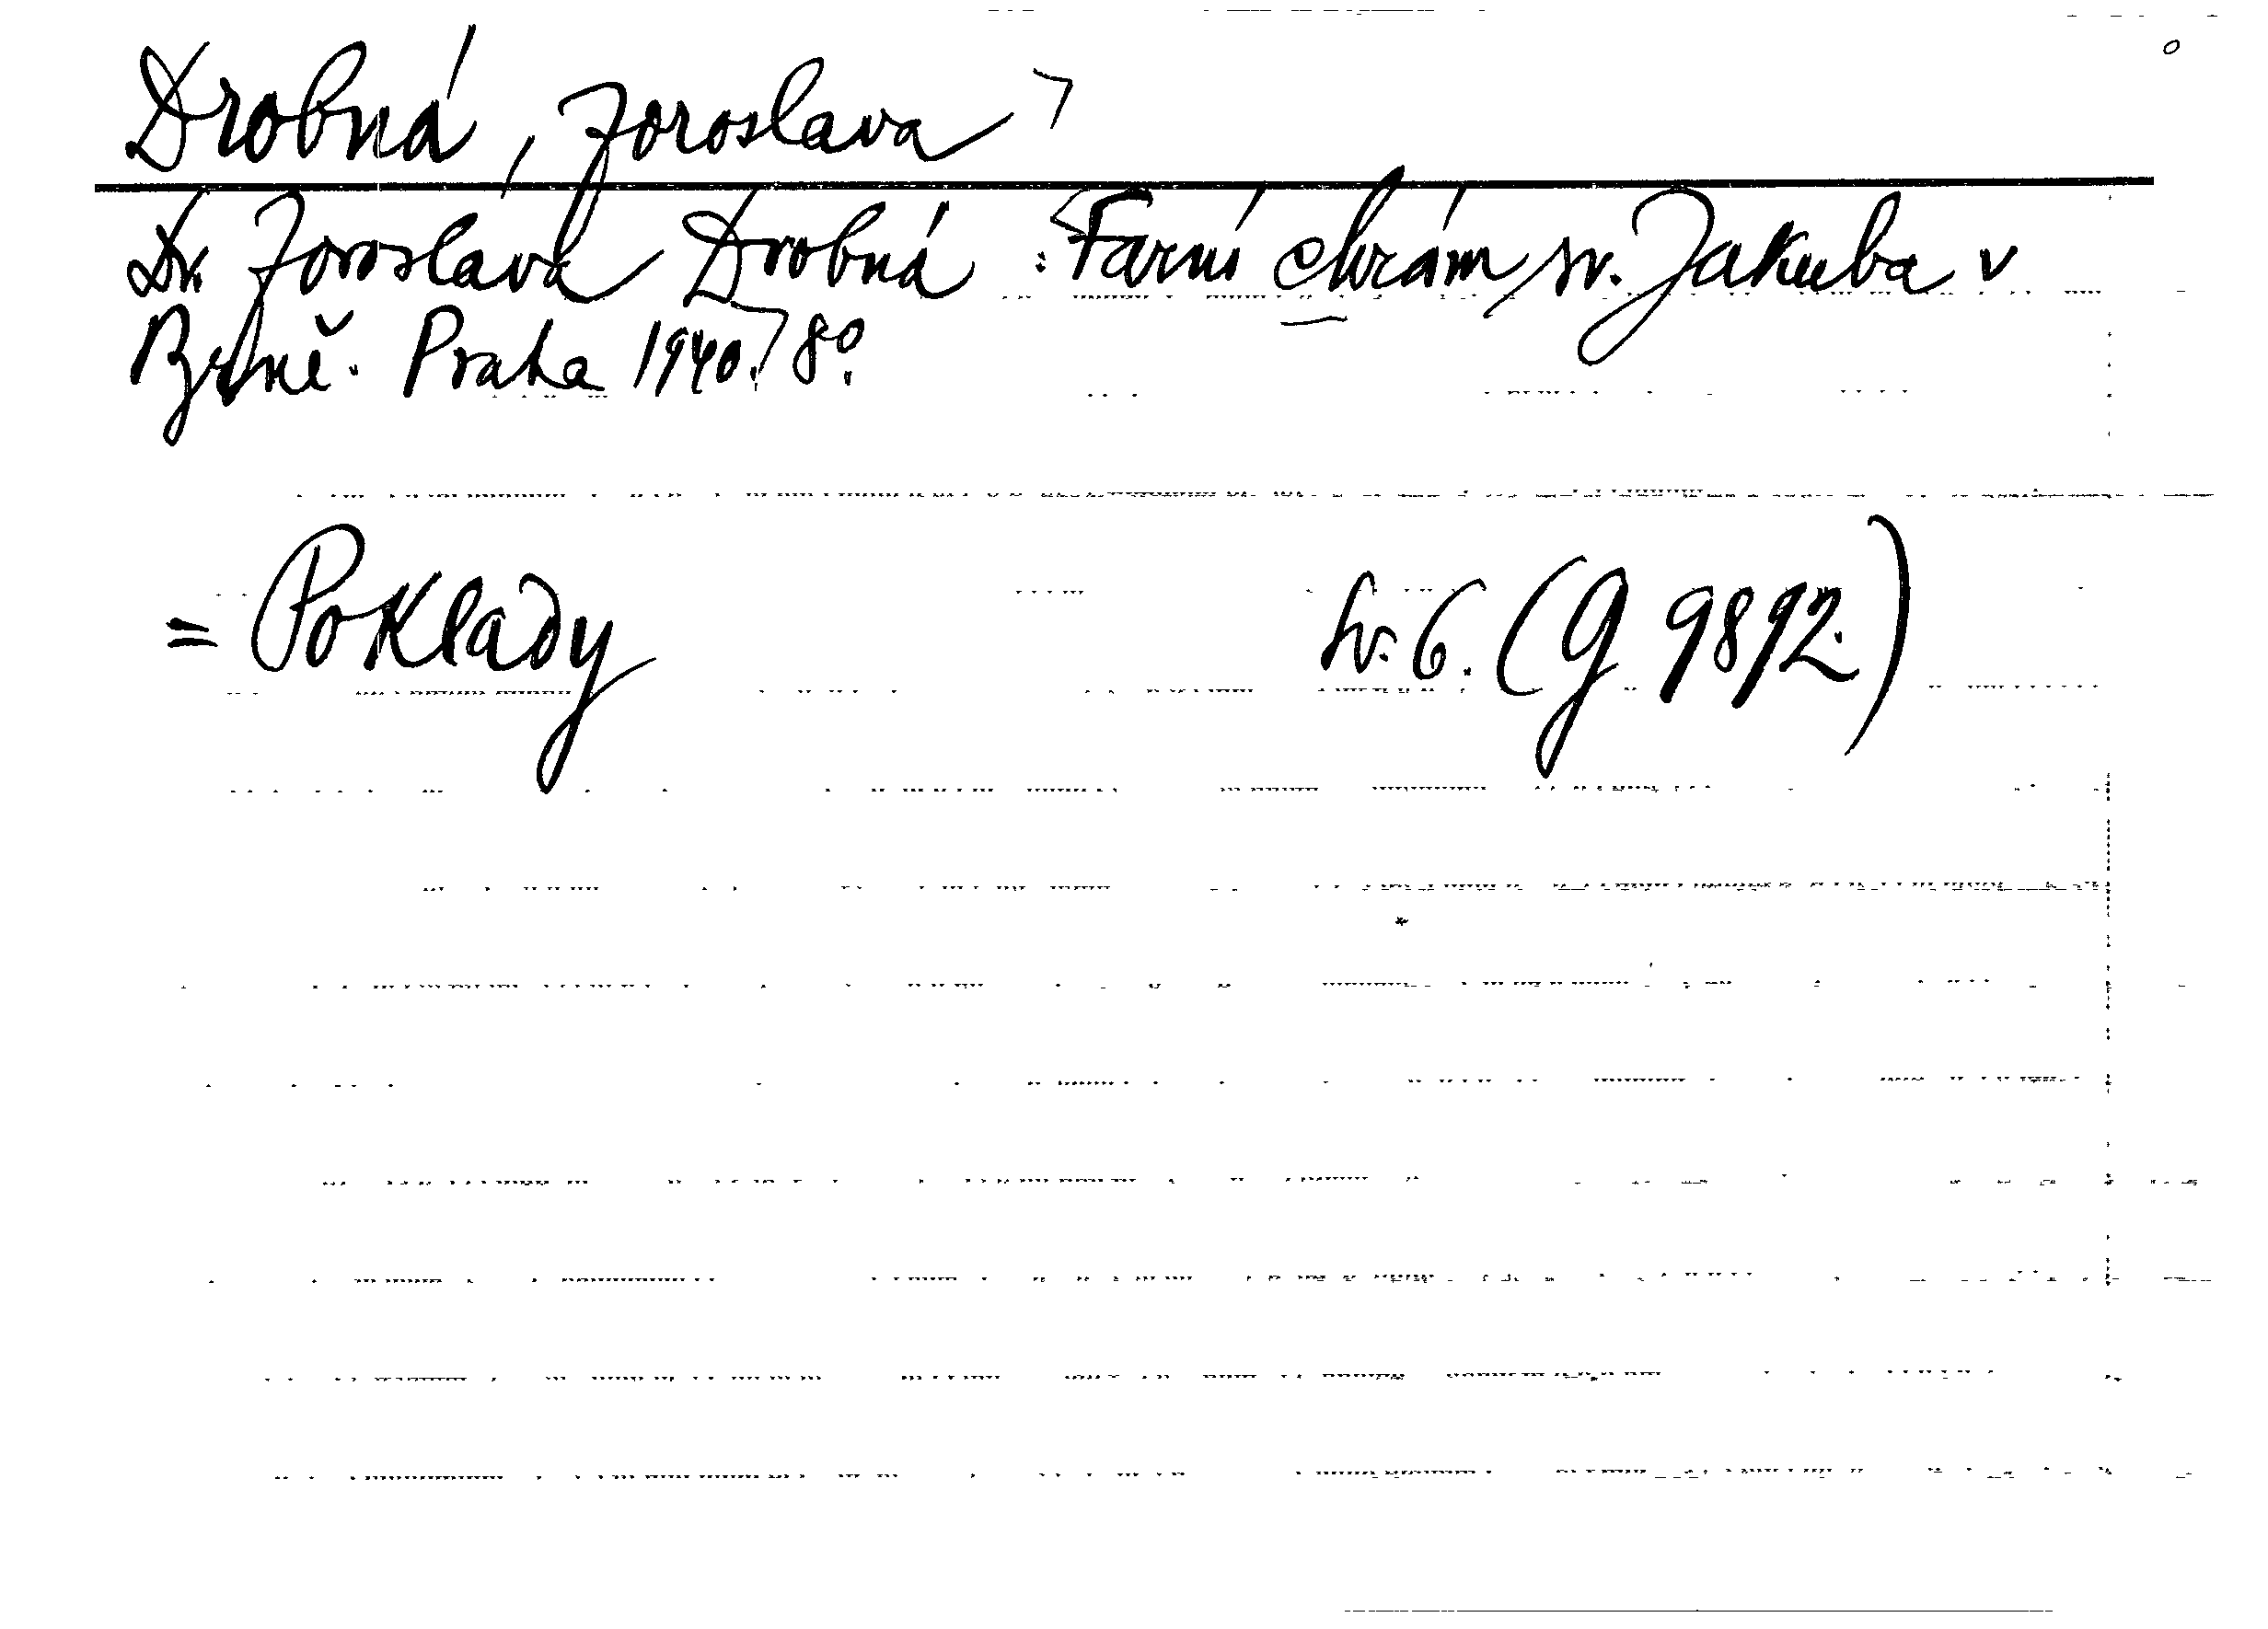 Drobná, Zoroslava
Dr. Zoroslava Drobná: Farní chrám sv. Jakuba v
Brně. Praha 1940. 8°.
= Poklady sv. 6. (G 9892.)